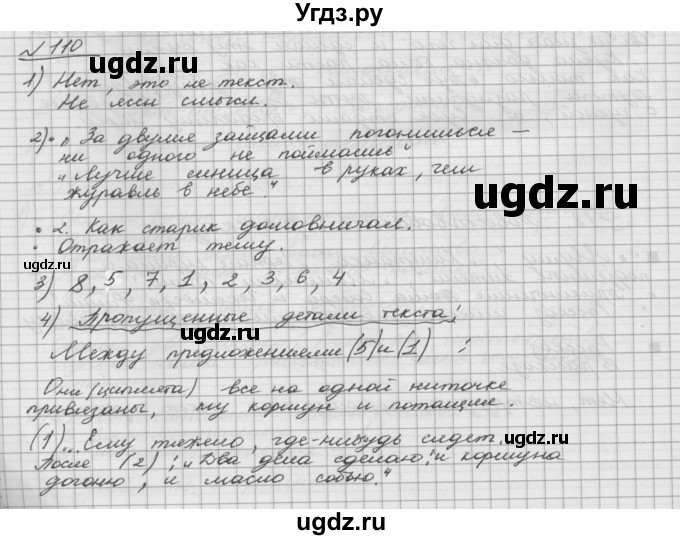 Угдз.ру
№ 110
ugdz.ru
ugdz.ru
1) Нет, это не текст.
Не ясен смысл.
2) • „За двумя зайцами погонишься –
ни одного не поймаешь".
„Лучше синица в руках, чем
журавль в небе."
• 2. Как старик домовничал.
• Отражает тему.
ugdz.ru
ugdz.ru
3) 8, 5, 7, 1, 2, 3, 6, 4.
4) Пропущенные детали текста:
Между предложениями (5) и (1) :
Они (цыплята) все на одной ниточке
привязаны, ну коршун и потащил.
(1)... Ему тяжело, где-нибудь сядет.
ugdz.ru
После (2) : „Два дела сделаю: и коршуна
догоню, и масло собью."
ugdz.ru
ugdz.ru